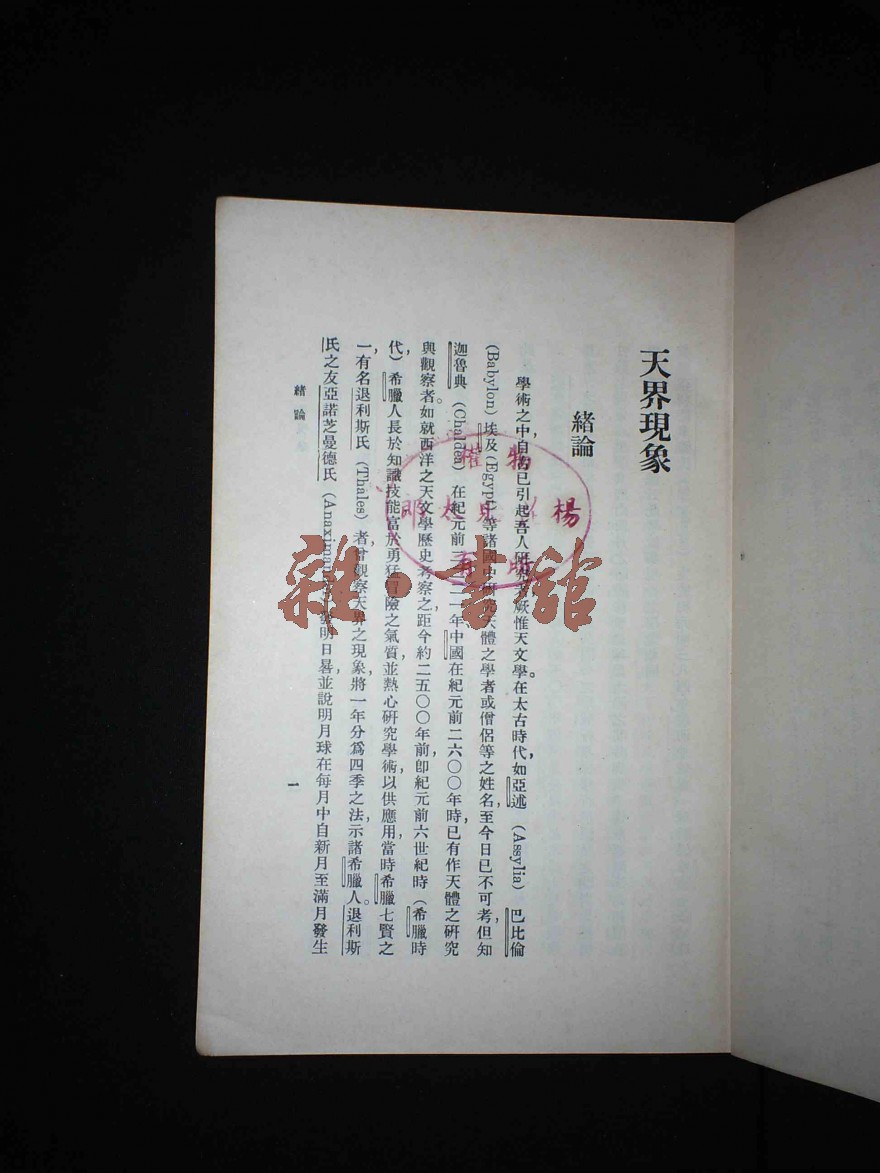 天界現象
緒論
學術之中,自古已引起吾人研究者,厥惟天文學。在太古時代,如亞述 (Assylia) 巴比倫
(Babylon) 埃及 (Egypt) 等諸國中,研究天體之學者或僧侶等之姓名,至今日已不可考,但知
迦魯典 (Chaldea) 在紀元前二一年,中國在紀元前二六〇〇年時,已有作天體之研究
與觀察者。如就西洋之天文學歷史考察之,距今約二五〇〇年前,卽紀元前六世紀時 (希臘時
代) 希臘人長於知識技能,富於勇猛冒險之氣質,並熱心研究學術,以供應用,當時希臘七賢之
一,有名退利斯氏 (Thales) 者,曾觀察天界之現象,將一年分爲四季之法,示諸希臘人。退利斯
氏之友亞諾芝曼德氏 (Anaximander) 發明日晷,並說明月球在每月中自新月至滿月發生
緒論
一
物權
楊太明
雜·書館